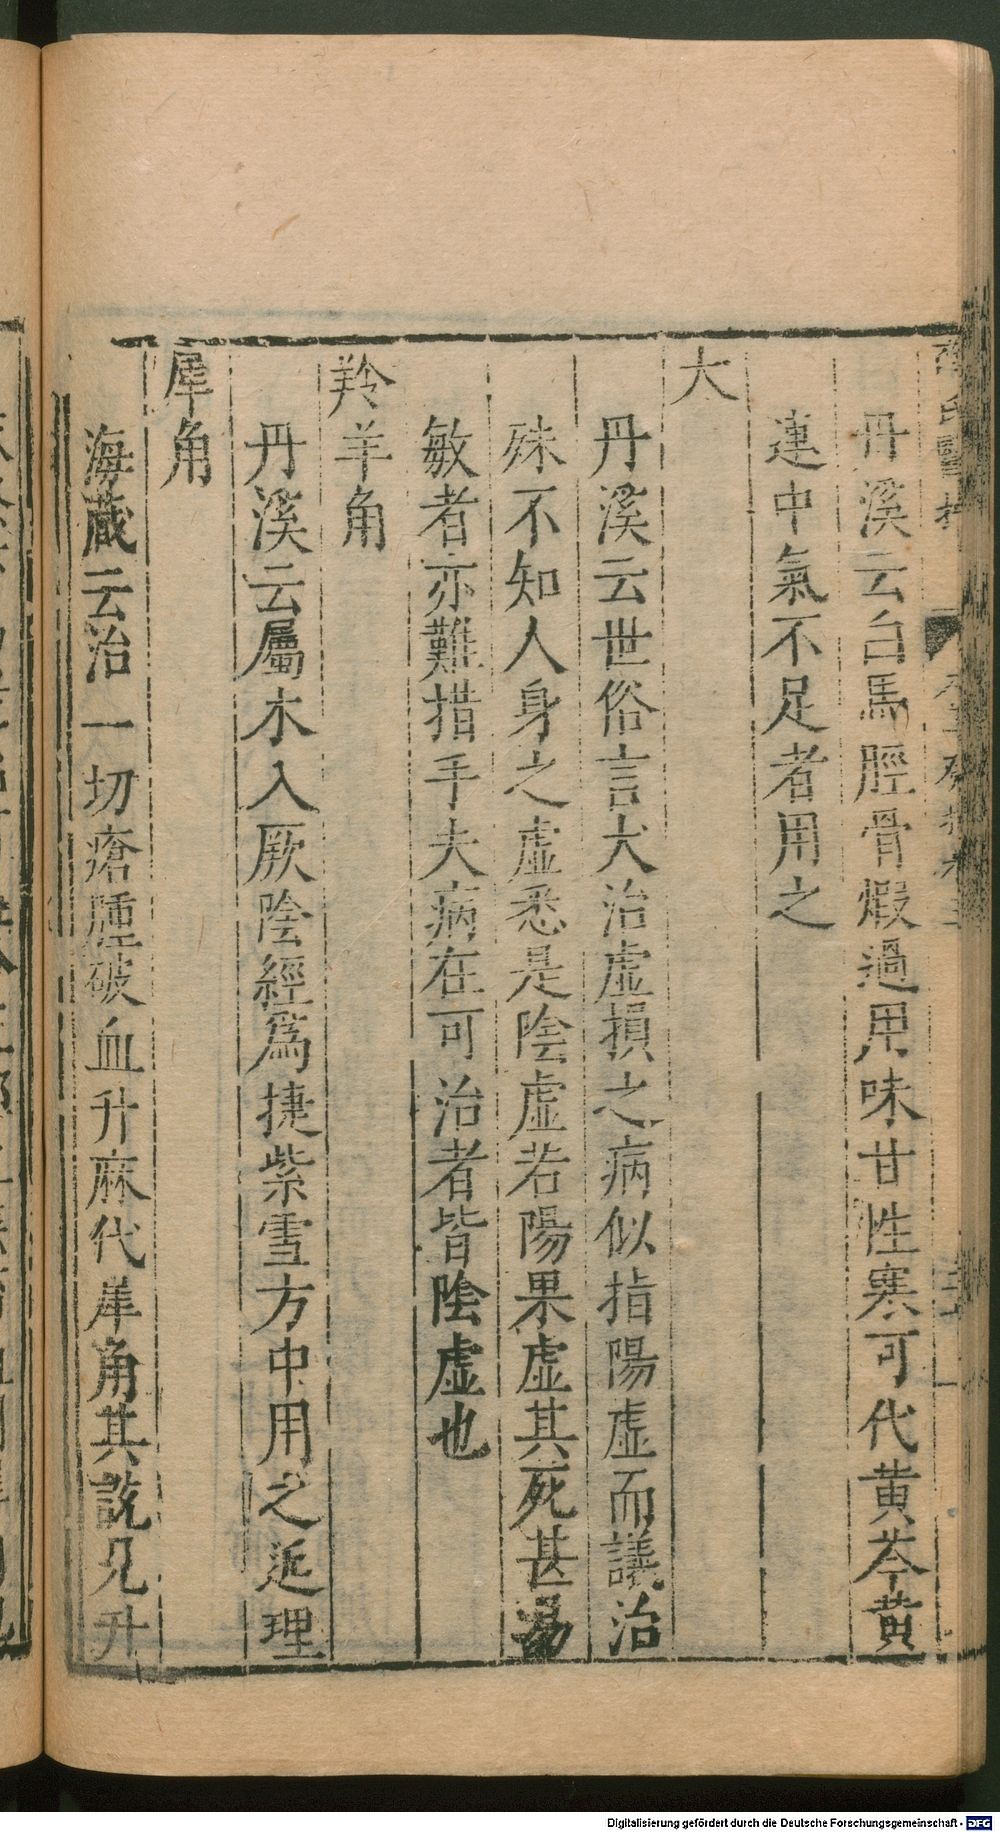 丹溪云白馬脛骨煆過用味甘性寒可代黄芩黄
連中氣不足者用之
犬
丹溪云世俗言犬治虛損之病似指陽虛而議治
殊不知人身之虛悉是陰虛若陽果虛其死甚易
敏者亦難措手夫病在可治者皆陰虛也
羚羊角
丹溪云屬木入厥陰經爲捷紫雪方中用之近理
犀角
海藏云治一切瘡腫破血升麻代犀角其説見升
Digitalisierung gefördert durch die Deutsche Forschungsgemeinschaft - DFG